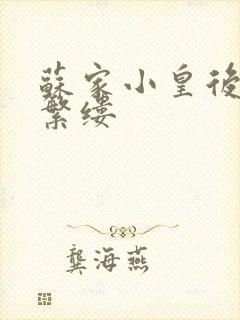 蘇家小皇後
繁縷
龔海燕